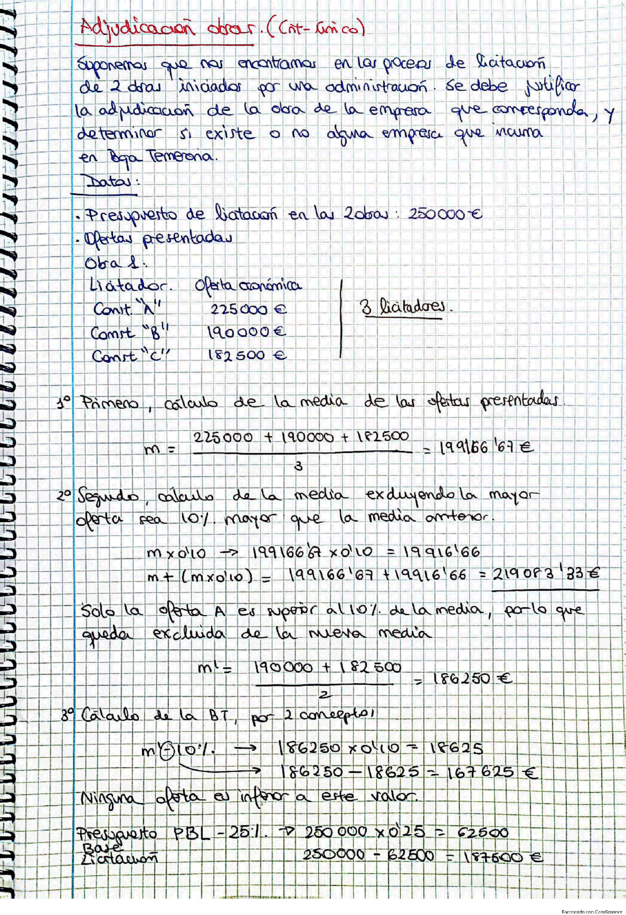 Adjudicación obras. (Crit-Único)
Suponemos que nos encontramos en los procesos de licitación
de 2 obras iniciados por una administración. Se debe justificar
la adjudicación de la obra de la empresa que corresponda, y
determinar si existe o no alguna empresa que incurra
en Baja Temeraria.
Datos:
· Presupuesto de licitación en las 2 obras: 250000 €
· Ofertas presentadas
Obra 1:
Licitador. Oferta económica
Const "A" 225000 €
Const "B" 190000 €
Const "C" 182500 €
3 licitadores.
1º Primero, cálculo de la media de las ofertas presentadas
m = 225000 + 190000 + 182500 / 3 = 199166'67 €
2º Segundo, cálculo de la media excluyendo la mayor
oferta sea 10% mayor que la media anterior.
m x 0'10 → 199166'67 x 0'10 = 19916'66
m + (m x 0'10) = 199166'67 + 19916'66 = 219083'33 €
Solo la oferta A es superior al 10% de la media, por lo que
queda excluida de la nueva media
m' = 190000 + 182500 / 2 = 186250 €
3º Cálculo de la BT, por 2 conceptos
m' - 10% → 186250 x 0'10 = 18625
→ 186250 - 18625 = 167625 €
Ninguna oferta es inferior a este valor.
Presupuesto PBL - 25% → 250000 x 0'25 = 62500
Base
Licitación 250000 - 62500 = 187500 €
Escaneado con CamScanner